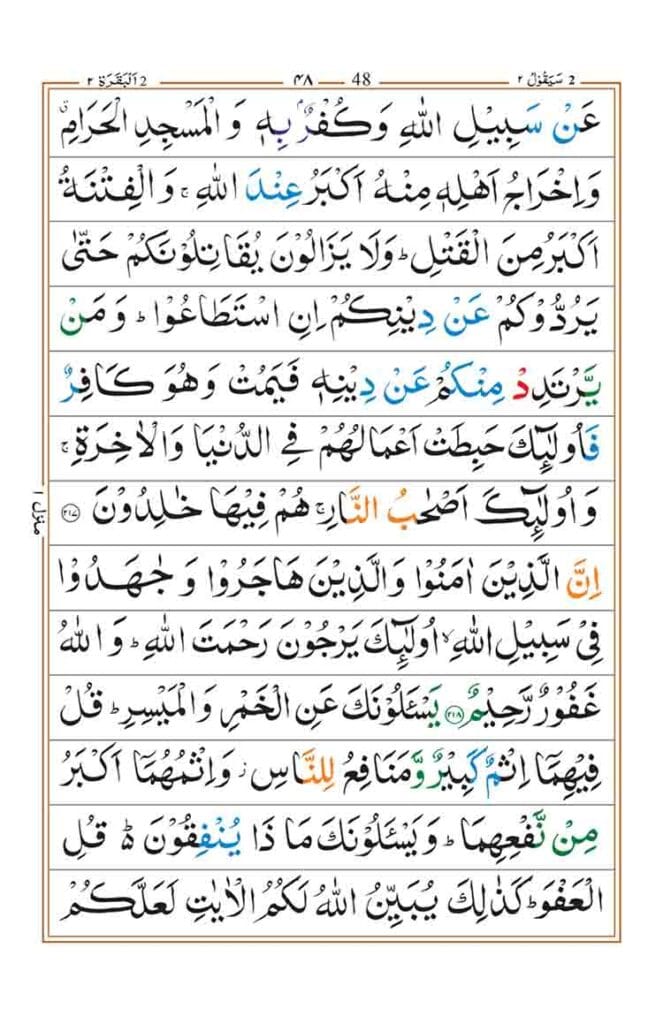 2 سَيَقُوْلُ ٢ 48 ۴۸ 2 اَلْبَقَرَة ٢
عَنْ سَبِيْلِ اللّٰهِ وَكُفْرٌۢ بِهٖ وَ الْمَسْجِدِ الْحَرَامِۗ
وَاِخْرَاجُ اَهْلِهٖ مِنْهُ اَكْبَرُ عِنْدَ اللّٰهِ ۚ وَ الْفِتْنَةُ
اَكْبَرُ مِنَ الْقَتْلِ ؕ وَلَا يَزَالُوْنَ يُقَاتِلُوْنَكُمْ حَتّٰى
يَرُدُّوْكُمْ عَنْ دِيْنِكُمْ اِنِ اسْتَطَاعُوْا ؕ وَ مَنْ
يَّرْتَدِدْ مِنْكُمْ عَنْ دِيْنِهٖ فَيَمُتْ وَ هُوَ كَافِرٌ
فَاُولٰٓئِكَ حَبِطَتْ اَعْمَالُهُمْ فِي الدُّنْيَا وَ الْاٰخِرَةِ ۚ
وَ اُولٰٓئِكَ اَصْحٰبُ النَّارِ ۚ هُمْ فِيْهَا خٰلِدُوْنَ ﴿۲۱۷﴾
اِنَّ الَّذِيْنَ اٰمَنُوْا وَ الَّذِيْنَ هَاجَرُوْا وَ جٰهَدُوْا
فِيْ سَبِيْلِ اللّٰهِ ۙ اُولٰٓئِكَ يَرْجُوْنَ رَحْمَتَ اللّٰهِ ؕ وَ اللّٰهُ
غَفُوْرٌ رَّحِيْمٌ ﴿۲۱۸﴾ يَسْـَٔلُوْنَكَ عَنِ الْخَمْرِ وَ الْمَيْسِرِ ؕ قُلْ
فِيْهِمَاۤ اِثْمٌ كَبِيْرٌ وَّ مَنَافِعُ لِلنَّاسِ ؗ وَ اِثْمُهُمَاۤ اَكْبَرُ
مِنْ نَّفْعِهِمَا ؕ وَ يَسْـَٔلُوْنَكَ مَا ذَا يُنْفِقُوْنَ ۬ؕ قُلِ
الْعَفْوَ ؕ كَذٰلِكَ يُبَيِّنُ اللّٰهُ لَكُمُ الْاٰيٰتِ لَعَلَّكُمْ
منزل ١